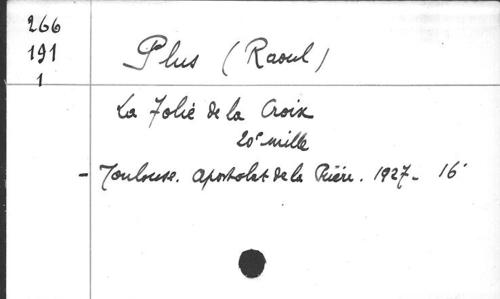 266
191
1
Plus (Raoul)
La Folie de la Croix
20e mille
- Toulouse. Apostolat de la Prière. 1927 - 16°